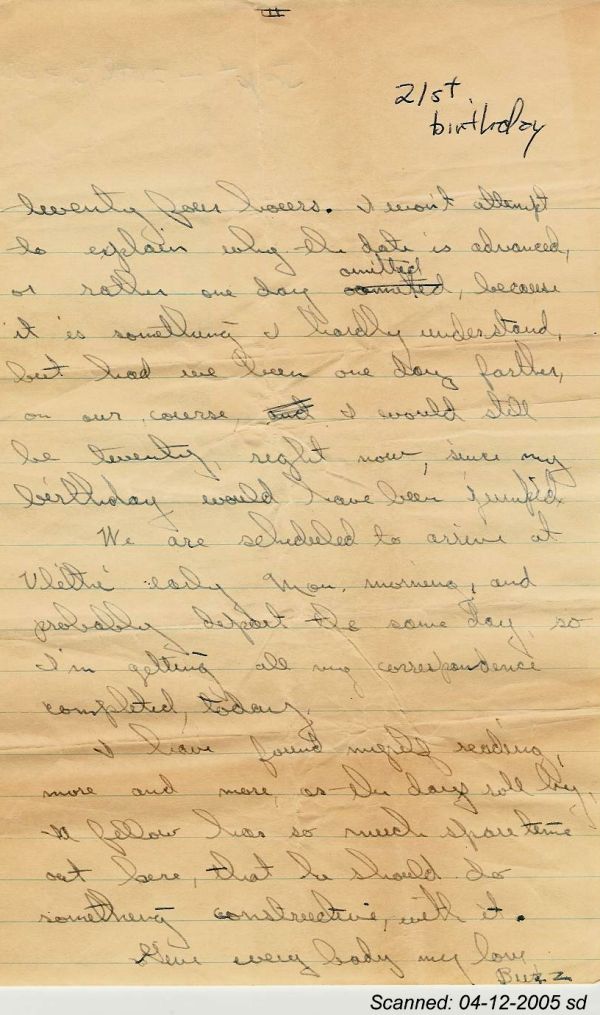 II
21st
birthday
twenty four hours. I won't attempt
to explain why the date is advanced,
omitted
or rather one day ommited, because
it is something I hardly understand,
but had we been one day farther,
on our course, and I would still
be twenty, right now, since my
birthday would have been jumped.
We are scheduled to arrive at
Ulithi early Mon. morning, and
probably depart the same day, so
I'm getting all my correspondence
completed, today.
I have found myself reading,
more and more, as the days roll by,
A fellow has so much spare time
out here, that he should do
something constructive, with it.
Give every body my love
Buzz
Scanned: 04-12-2005 sd